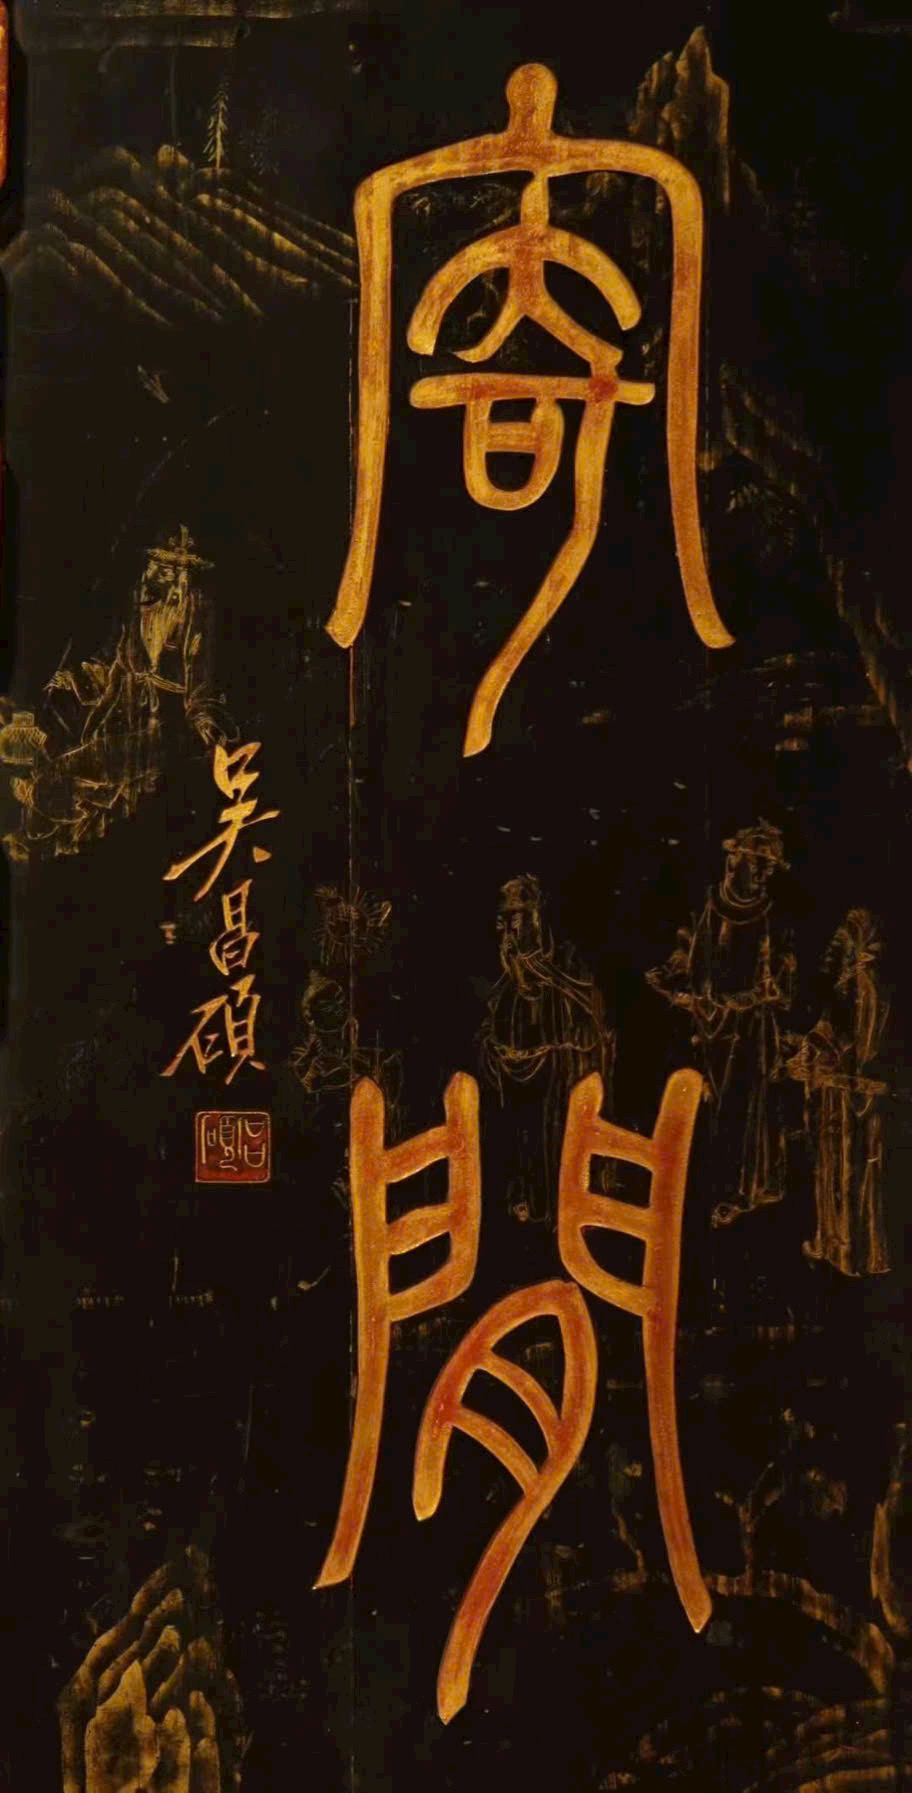 寄閒
吳昌碩